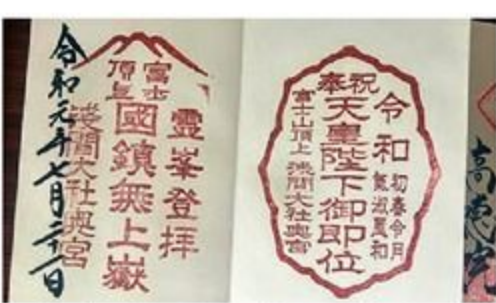 奉祝
令和
初春令月
氣淑風和
天皇陛下御即位
富士山頂上 淺間大社奥宮
靈峯登拝
富士
頂上
國鎮無上嶽
淺間大社奥宮
令和元年七月